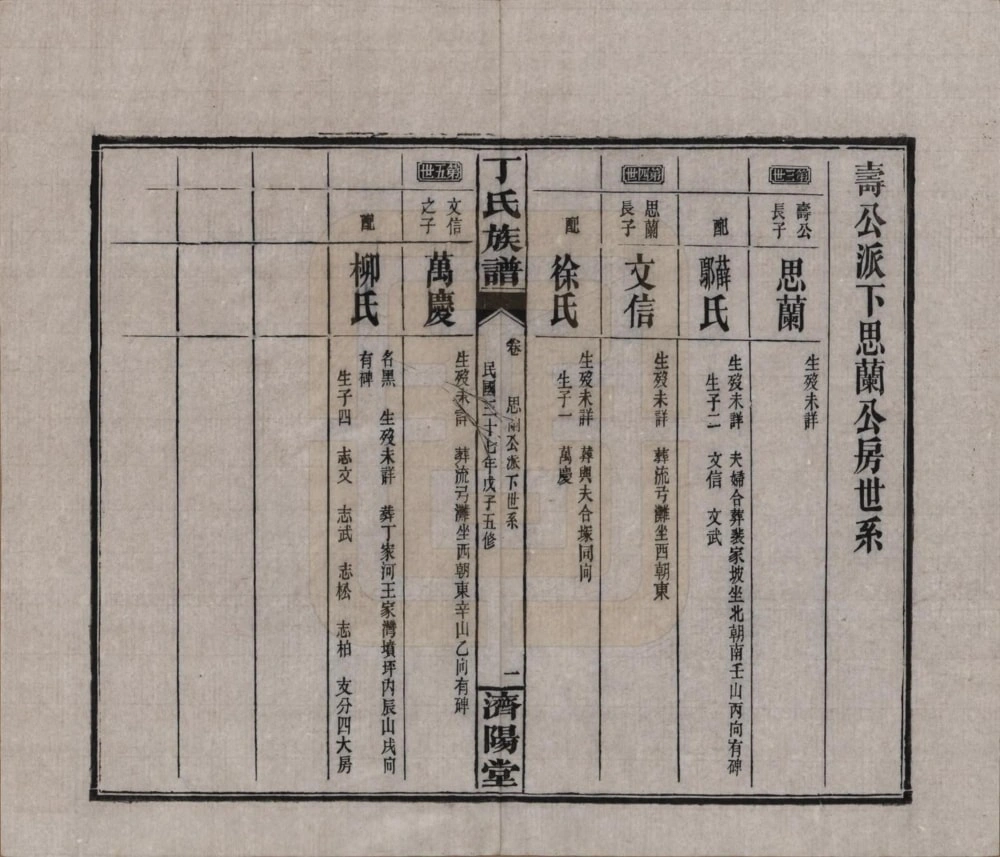 壽公派下思蘭公房世系
第三世
壽公
長子
思蘭
生歿未詳
配
薛
鄢
氏
生歿未詳 夫婦合葬裴家坡坐北朝南壬山丙向有碑
生子二 文信 文武
第四世
思蘭
長子
文信
生歿未詳 葬流弓灘坐西朝東
配
徐氏
生歿未詳 葬與夫合塚同向
生子一 萬慶
丁氏族譜
卷 思蘭公派下世系
民國三十七年戊子五修
二
濟陽堂
第五世
文信
之子
萬慶
生歿未詳 葬流弓灘坐西朝東辛山乙向有碑
配
柳氏
名黑 生歿未詳 葬丁家河王家灣墳坪內辰山戌向
有碑
生子四 志文 志武 志松 志柏 支分四大房